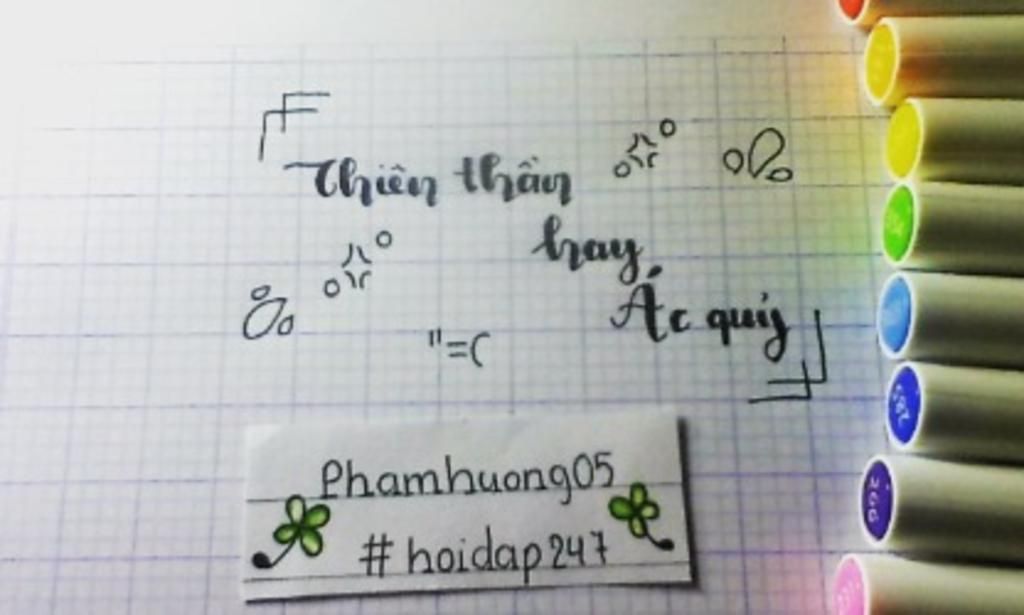 Thiên thần
hay
Ác quỷ
"=(
Phamhuong05
#hoidap247